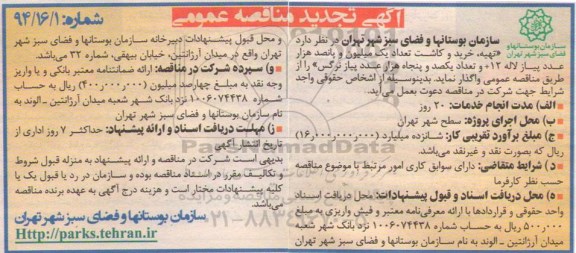 آگهی تجدید مناقصه عمومی
شماره: ۹۴/۱۶/۱
سازمان بوستانها و فضای سبز شهر تهران
سازمان بوستانها و فضای سبز شهر تهران در نظر دارد
«تهیه، خرید و کاشت تعداد یک میلیون و پانصد هزار
عدد پیاز لاله ۱۲+ و تعداد یکصد و پنجاه هزار عدد پیاز نرگس» را از
طریق مناقصه عمومی واگذار نماید. بدینوسیله از اشخاص حقوقی واجد
شرایط جهت شرکت در مناقصه دعوت بعمل می‌آید.
الف) مدت انجام خدمات: ۲۰ روز
ب) محل اجرای پروژه: سطح شهر تهران
ج) مبلغ برآورد تقریبی کار: شانزده میلیارد (۱۶,۰۰۰,۰۰۰,۰۰۰)
ریال که بصورت نقد و غیرنقد می‌باشد.
د) شرایط متقاضی: دارای سوابق کاری امور مرتبط با موضوع مناقصه
حسب نظر کارفرما
ه) محل دریافت اسناد و قبول پیشنهادات: محل دریافت اسناد
واحد حقوقی و قراردادها با ارائه معرفی‌نامه معتبر و فیش واریزی به مبلغ
۵۰۰,۰۰۰ ریال به حساب شماره ۱۰۰۶۰۷۴۴۳۸ نزد بانک شهر شعبه
میدان آرژانتین - الوند به نام سازمان بوستانها و فضای سبز شهر تهران
و محل قبول پیشنهادات دبیرخانه سازمان بوستانها و فضای سبز شهر
تهران واقع در میدان آرژانتین، خیابان بیهقی، شماره ۳۲ می‌باشد.
و) سپرده شرکت در مناقصه: ارائه ضمانتنامه معتبر بانکی و یا واریز
وجه نقد به مبلغ چهارصد میلیون (۴۰۰,۰۰۰,۰۰۰) ریال به حساب
شماره ۱۰۰۶۰۷۴۴۳۸ نزد بانک شهر شعبه میدان آرژانتین - الوند به
نام سازمان بوستانها و فضای سبز شهر تهران
ز) مهلت دریافت اسناد و ارائه پیشنهاد: حداکثر ۷ روز اداری از
تاریخ انتشار آگهی
بدیهی است شرکت در مناقصه و ارائه پیشنهاد به منزله قبول شروط
و تکالیف مقرر در اسناد مناقصه بوده و سازمان در رد یا قبول یک یا
کلیه پیشنهادات مختار است و هزینه درج آگهی به عهده برنده مناقصه
می‌باشد.
سازمان بوستانها و فضای سبز شهر تهران
Http://parks.tehran.ir